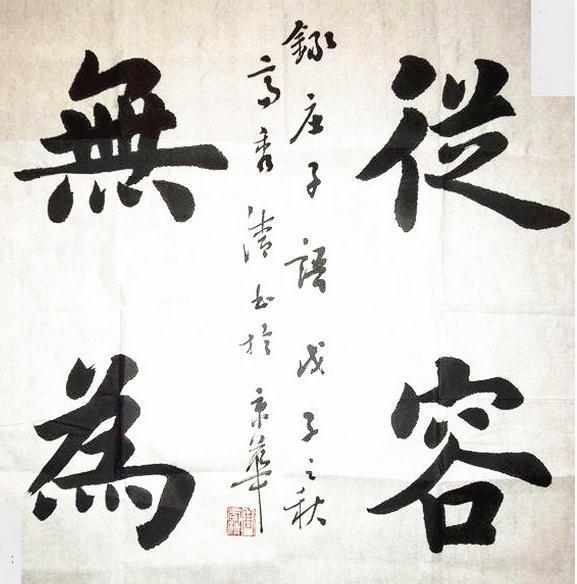 從容
無為
錄庄子語戊子之秋
高秀清书於京華